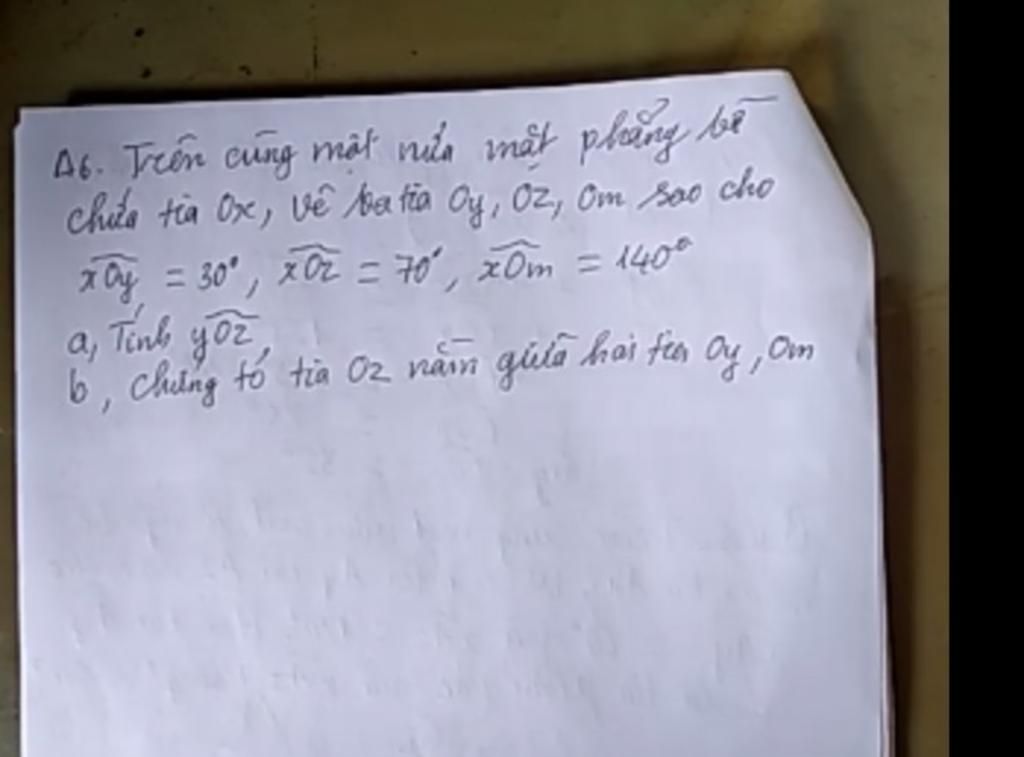 Δ6. Trên cùng một nửa mặt phẳng bờ
chứa tia Ox, vẽ ba tia Oy, Oz, Om sao cho
xOy = 30°, xOz = 70°, xOm = 140°
a, Tính yOz
b, chứng tỏ tia Oz nằm giữa hai tia Oy, Om